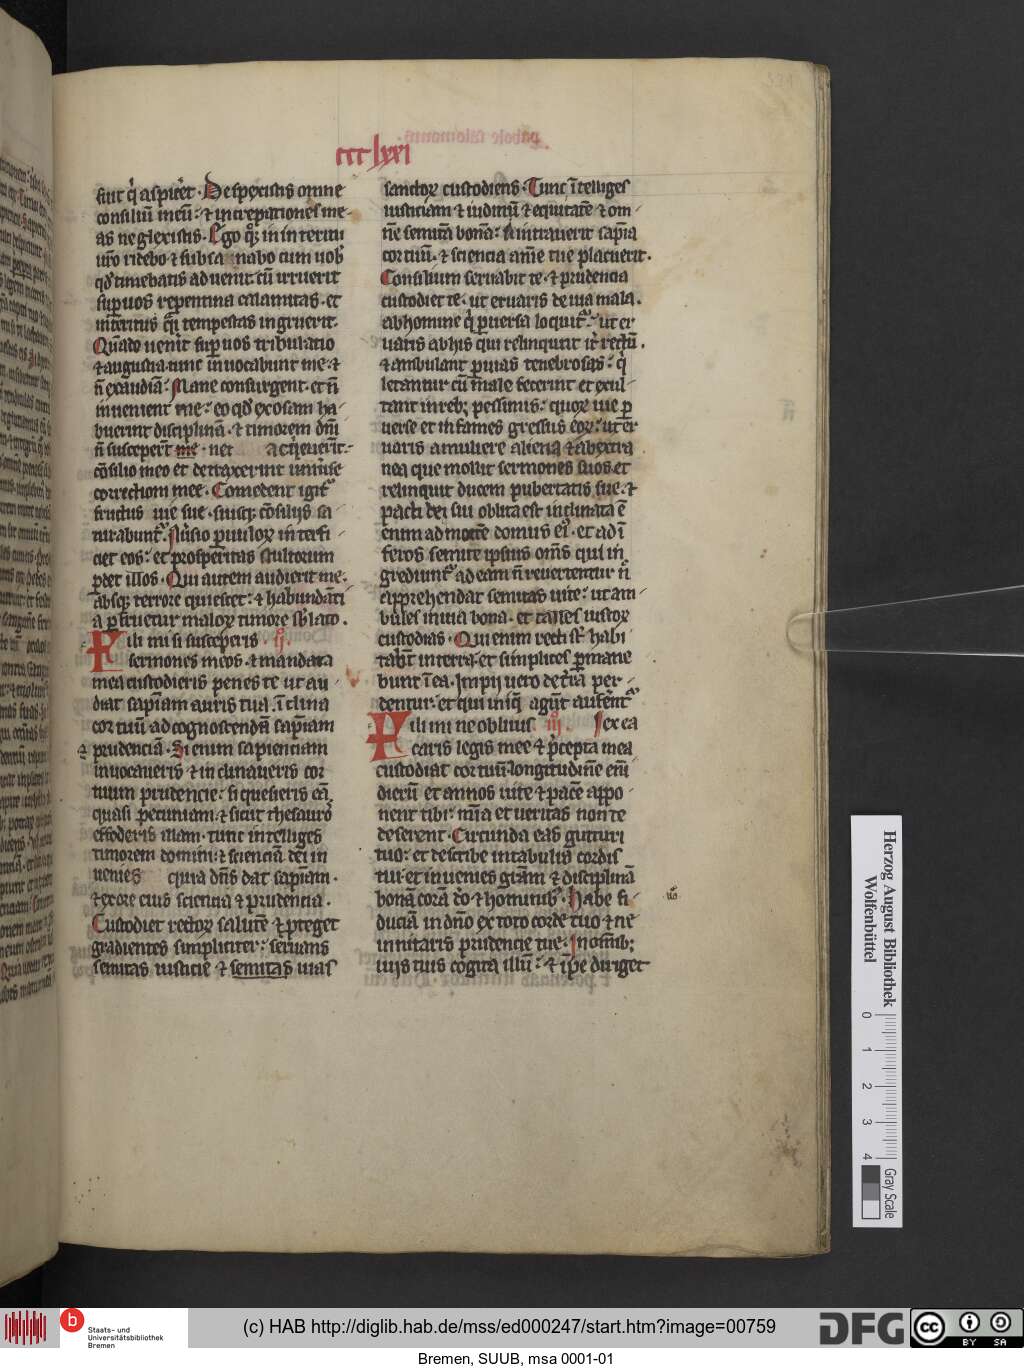 ccclxxi
fuit q̇ aspicēt · Despexistis omne
consiliū meū : ⁊ increpationes me-
as neglexistis · Ego q̄ꝫ in interitu
ur̄o ridebo ⁊ subsannabo cum uob̄
qd̄ timebatis aduenit · cū irruerit
sup uos repentina calamitas · et
interitus q̄i tempestas ingruerit ·
Quādo uen̄it sup uos tribulatio
⁊ augustia · tunc inuocabunt me · ⁊
n̄ exaudiā : Mane consurgent · et n̄
inuenient me : eo qd̄ exosam ha-
buerint disciplinā · ⁊ timorem dn̄i
n̄ susceper̄t me · nec acq̇euer̄it -
cōsilio meo et detraxerint uniu̇se
correctioni mee · Comedent igit᷑
fructus uie sue · suisqꝫ cōsilijs sa
turabunt᷑ · Au̇sio p̄uuloꝝ interfi-
ciet eos : et prosperitas stultorum
p̄det illos · Qui autem audierit me ·
absqꝫ terrore quiescet : ⁊ habundāti
a p̄fruetur maloꝝ timore sb̄lato ·
Fili mi si susceperis · ij
sermones meos · ⁊ mandata
mea custodieris penes te ut au-
diat sapīam auris tua · īclina
cor tuū ad cognoscendā sapīam
⁊ prudenciā · Si enim sapienciam
inuocaueris ⁊ inclinaueris cor
tuum prudencie : si quesieris eā
quasi pecuniam · ⁊ sicut thesauro
effoderis illam · tunc intelliges
timorem domini : ⁊ scienciā dei in
uenies quia dn̄s dat sapīam ·
⁊ ex ore eius sciencia ⁊ prudencia ·
Custodiet rectoꝝ salutē ⁊ p̄teget
gradientes simpliciter : seruans
semitas iusticie ⁊ semitas uias
sanctoꝝ custodiens · Tunc ītelliges
iusticiam ⁊ iudiciū ⁊ equitatē ⁊ om-
nē semitā bonā : si intrauerit sapīa
cor tuū · ⁊ sciencia anīe tue placuerit ·
Consilium seruabit te · ⁊ prudencia
custodiet te : ut eruaris de uia mala ·
ab homine q̇ p̄uersa loquit᷑ : ut er
uaris ab his qui relinqunt it̄ rectū ·
⁊ ambulant p̄ uias tenebrosas : q̇
letantur cū male fecerint et exul-
tant in rebꝫ pessimis : quoꝝ uie p̄
uerse et infames gressus eoꝝ : ut er
uaris a muliere aliena ⁊ ab extra
nea que mollit sermones suos · et
relinquit ducem pubertatis sue · ⁊
pacti dei sui oblita est inclinata ē
enim ad mortē domus ei᷒ · et ad ī
feros semite ipsius om̄s qui in
grediunt᷑ ad eam n̄ reuertentur n̄
apprehendat semitas uite : ut am-
bules in uia bona · et calles iustoꝝ
custodias · Qui enim recti st̄ habi
tabūt in terra · et simplices p̄mane
bunt ī ea · Impij uero de t̄ra per-
dentur · et qui iniq̄ agūt aufer̄nt᷑
Fili mi ne obliuis iij · lex ea
caris legis mee ⁊ p̄cepta mea
custodiat cor tuū · longitudinē eni᷑
dierū et annos uite ⁊ pacē appo-
nent tibi : mīa et ueritas non te
deserent · Circumda eas gutturi
tuo : et describe in tabulis cordis
tui · et inuenies grām ⁊ disciplinā
bonā corā do̅ ⁊ hominib᷒ · Habe fi-
duciā in dn̄o ex toto corde tuo ⁊ ne
innitaris prudencie tue · In om̄ibꝫ
uijs tuis cogita illū : ⁊ ip̄e diriget
Herzog August Bibliothek
Wolfenbüttel
0 1 2 3 4
Gray Scale
b
Staats- und
Universitätsbibliothek
Bremen
(c) HAB http://diglib.hab.de/mss/ed000247/start.htm?image=00759
DFG
cc BY SA
Bremen, SUUB, msa 0001-01